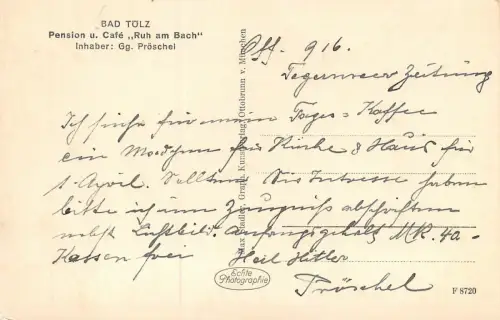 BAD TÖLZ
Pension u. Café „Ruh am Bach"
Inhaber: Gg. Pröschel
Off. 916.
Tegernseer Zeitung
Ich suche für mein Tages=Kaffee
ein Mädchen für Küche & Haus für
1. April. Sollten Sie Intresse haben
bitte ich um Zeugniss abschriften
nebst Lichtbild. Anfangsgehalt MK. 40-
Kassen frei Heil Hitler
Pröschel
Max Stadler, Graph. Kunstverlag, Ottobrunn v. München
Echte
Photographie
F 8720